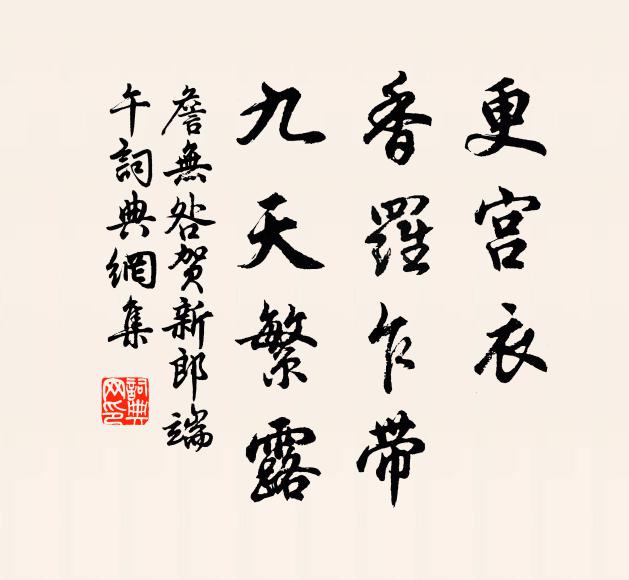 更宫衣
香羅乍带
九天繁露
詹無咎贺新郎端
午詞典網集
詞典
网印